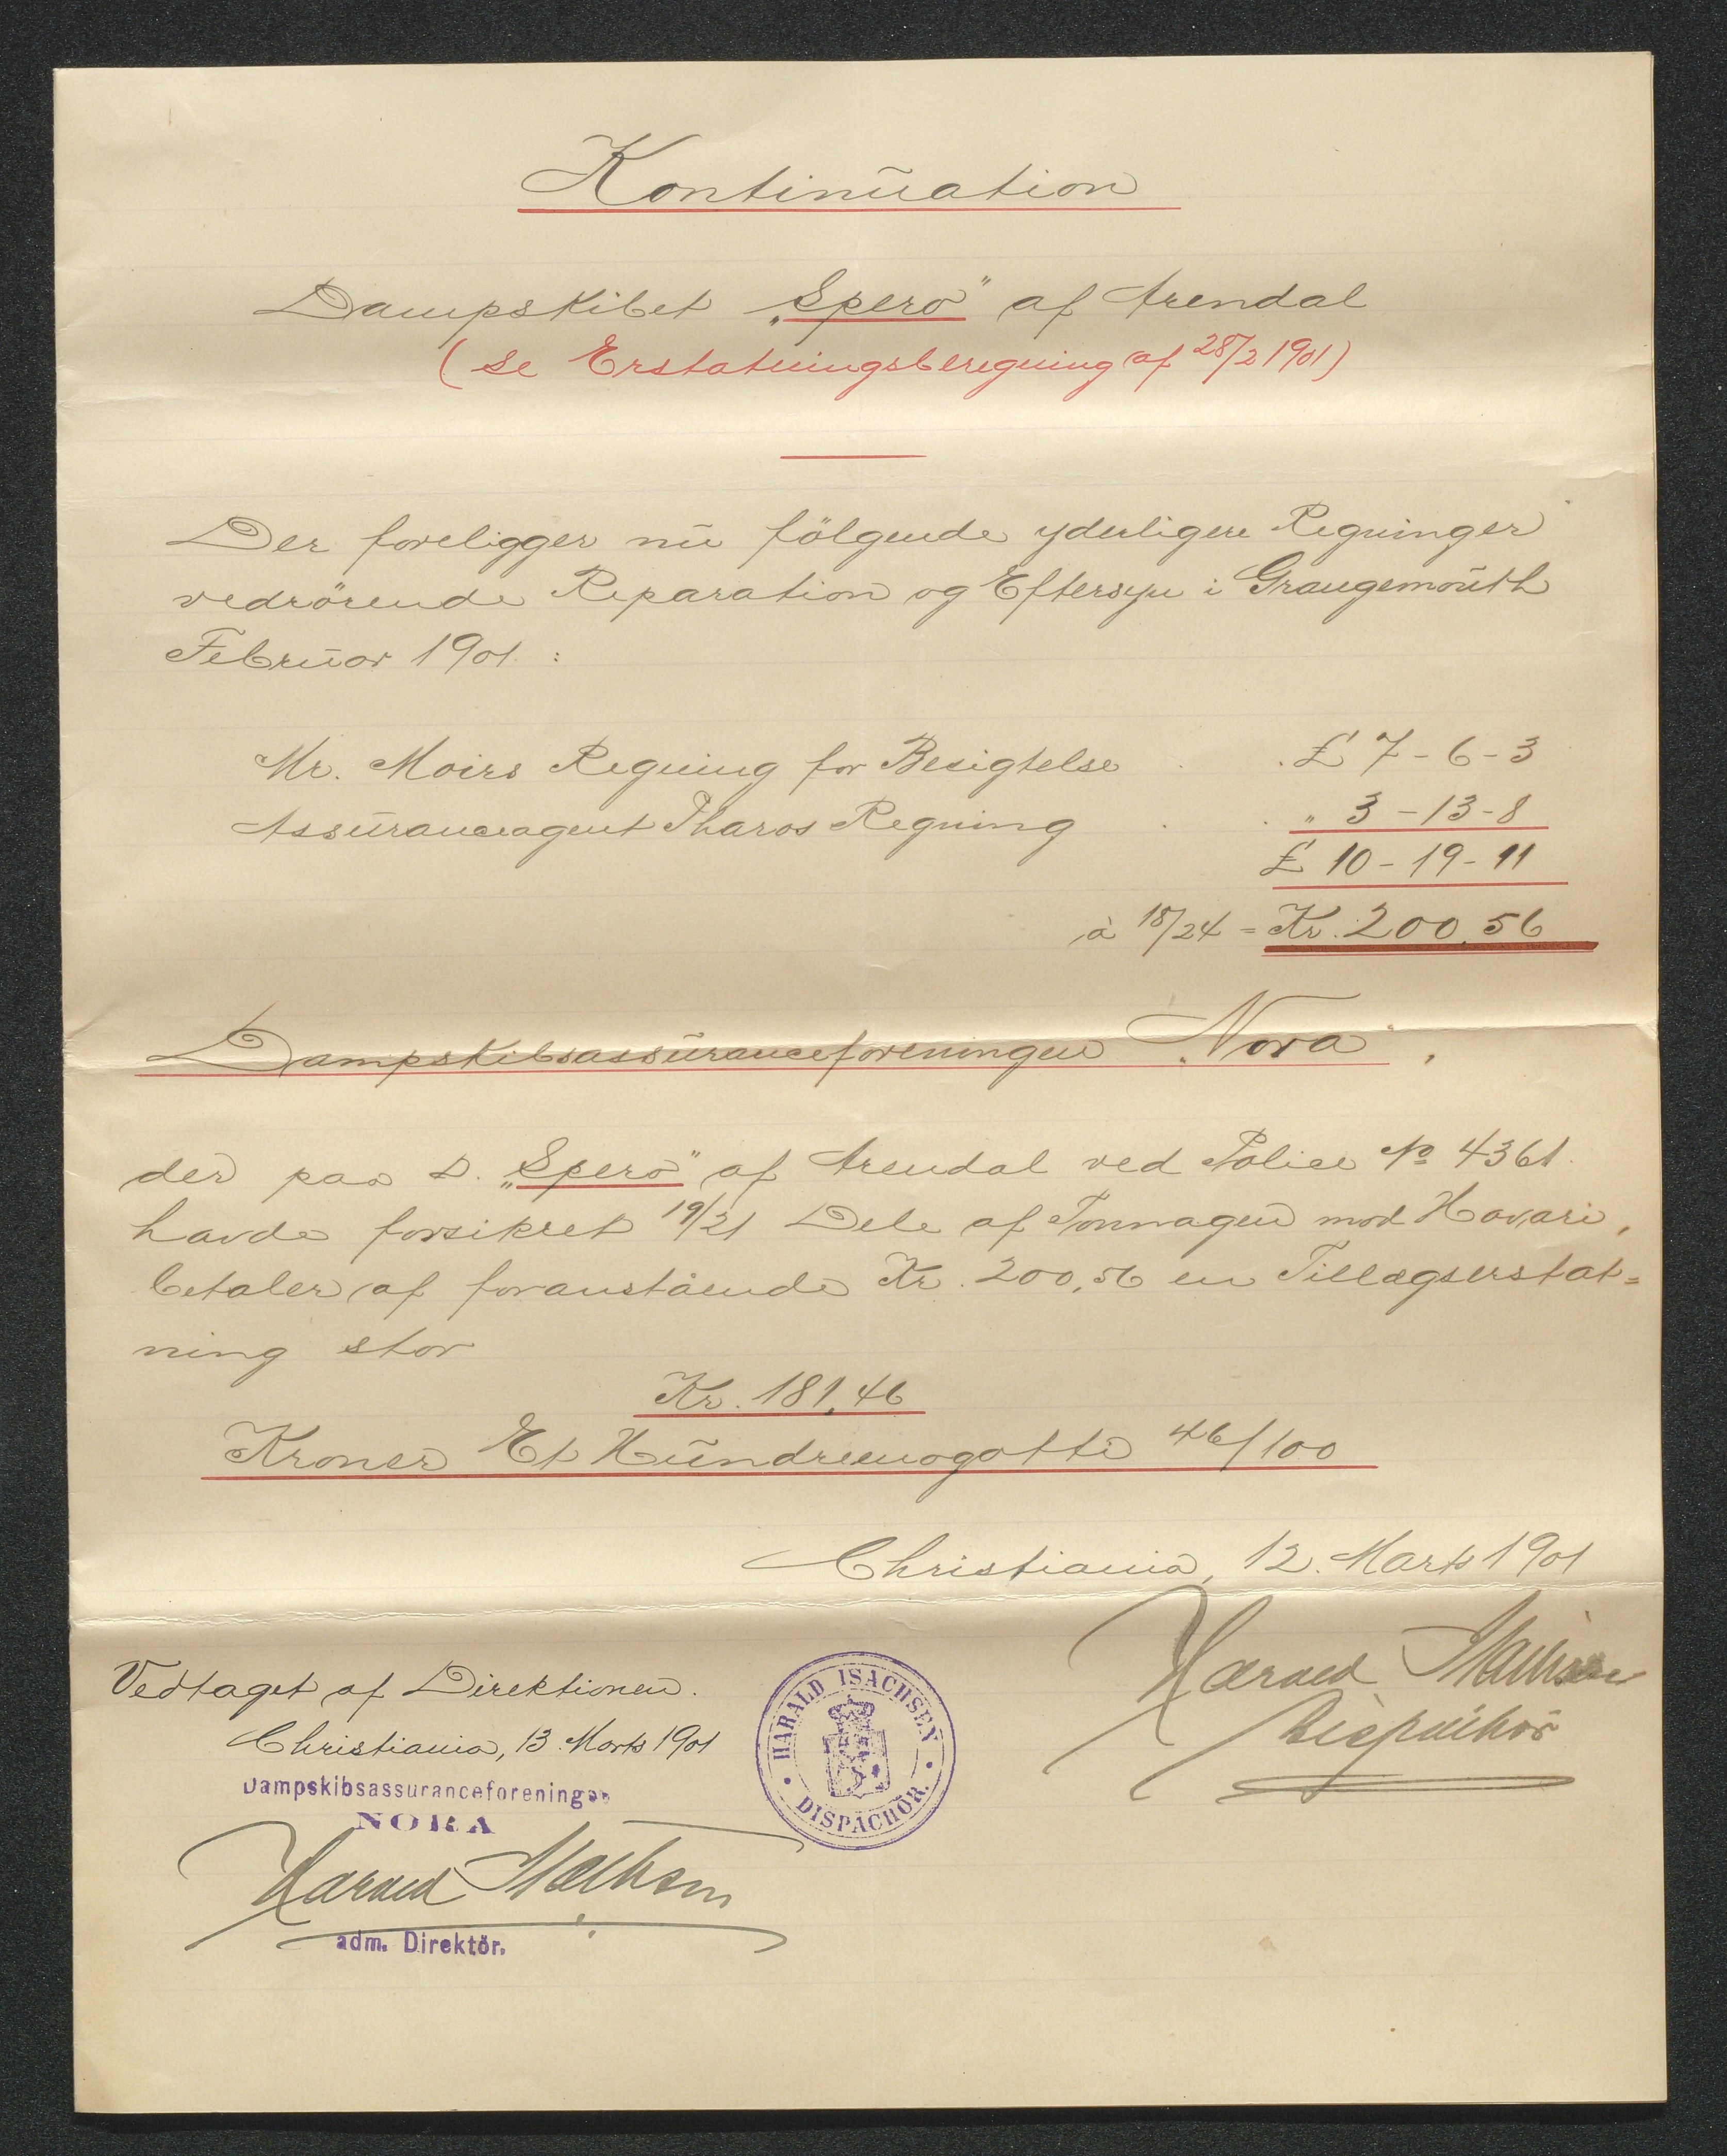 Kontinuation
Dampskibet „Spero" af Arendal
(Se Erstatningsberegning af 28/2 1901)
Der foreligger nu følgende yderligere Regninger
vedrörende Reparation og Eftersyn i Grangemouth
Februar 1901:
Mr. Moirs Regning for Besigtelse . . £ 7-6-3
Assuranceagent Tharos Regning . . " 3-13-8
£ 10-19-11
à 18/24 = Kr. 200.56
Dampskibsassuranceforeningen „Nora",
der paa D. „Spero" af Arendal ved Police No 4361
havde forsikret 19/21 Dele af Tonnagen mod Havari,
betaler af foranstående Kr. 200,56 en Tillægserstat=
ning stor
Kr. 181,46
Kroner Et Hundreenogotti 46/100
Christiania, 12. Marts 1901
Harald Isachsen
Dispachör
HARALD ISACHSEN
DISPACHÖR.
Vedtaget af Direktionen.
Christiania, 13 Marts 1901
Dampskibsassuranceforeningen
NORA
Harald Isachsen
adm. Direktör.